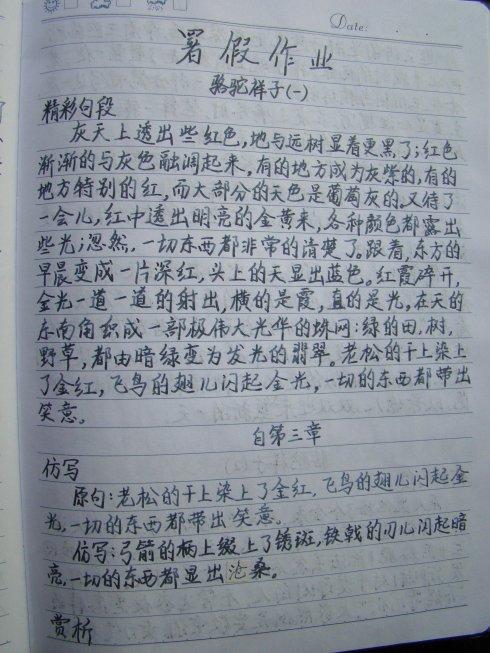 Date:
暑假作业
骆驼祥子(一)
精彩句段
灰天上透出些红色,地与远树显着更黑了;红色
渐渐的与灰色融调起来,有的地方成为灰紫的,有的
地方特别的红,而大部分的天色是葡萄灰的。又待了
一会儿,红中透出明亮的金黄来,各种颜色都露出
些光;忽然,一切东西都非常的清楚了。跟着,东方的
早晨变成一片深红,头上的天显出蓝色。红霞碎开,
金光一道一道的射出,横的是霞,直的是光,在天的
东南角织成一部极伟大光华的蛛网:绿的田,树,
野草,都由暗绿变为发光的翡翠。老松的干上染上
了金红,飞鸟的翅儿闪起金光,一切的东西都带出
笑意。
自第三章
仿写
原句:老松的干上染上了金红,飞鸟的翅儿闪起金
光,一切的东西都带出笑意。
仿写:弓箭的柄上缀上了锈斑,铁戟的刃儿闪起暗
亮,一切的东西都显出沧桑。
赏析